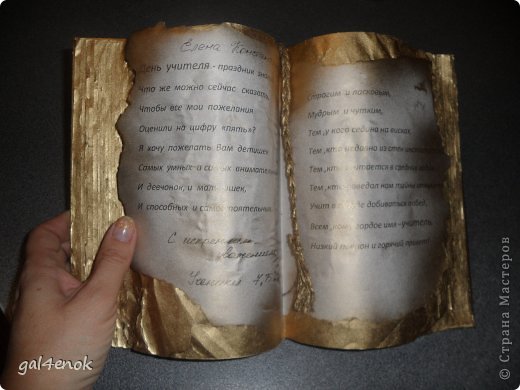 Елена
День учителя - праздник
Что же можно сейчас сказать,
Чтобы все мои пожелания
Оценили на цифру «пять»?
Я хочу пожелать Вам детишек
Самых умных и самых внимательных
И девчонок, и мальчишек,
И способных и самостоятельных
С искренним
уважением
Строгим и ласковым,
Мудрым и чутким,
Тем, у кого седина на висках,
Тем, кто недавно из стен
Тем, кто считается в средних
Тем, кто поведал нам тайны
Учит в труде добиваться побед,
Всем, кому гордое имя - учитель,
Низкий поклон и горячий привет!
gal4enok
© Страна Мастеров